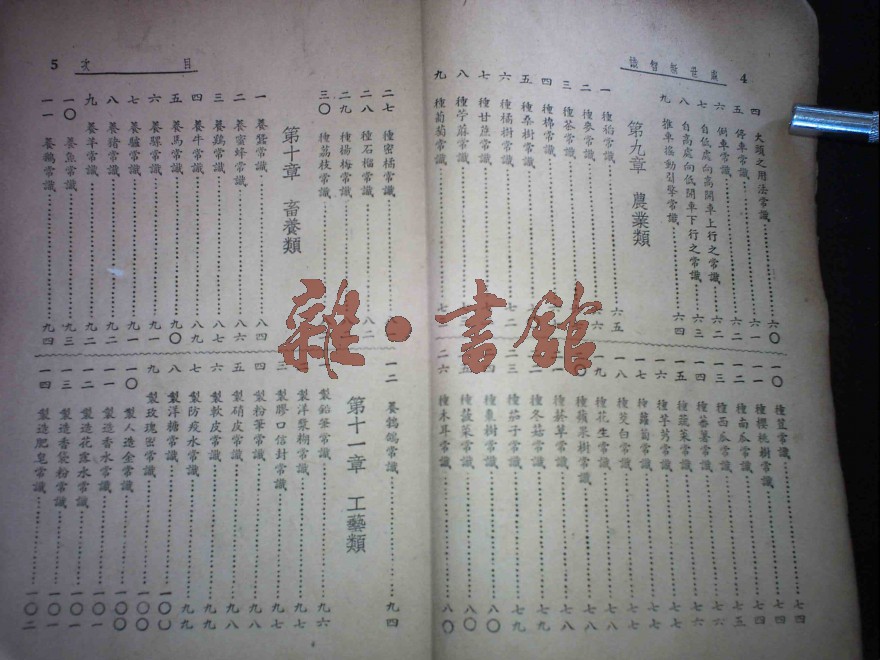 處世新智識
4
四 大頭之用法常識 六〇
五 停車常識 六一
六 倒車常識 六二
七 自低處向高開車上行之常識 六三
八 自高處向低開車下行之常識 六四
九 推車搖動引擎常識
第九章 農業類
一 種稻常識 六五
二 種麥常識 六六
三 種茶常識
四 種棉常識
五 種桑樹常識
六 種橘樹常識 七二
七 種甘蔗常識
八 種苧蔴常識
九 種葡萄常識
一〇 種荳常識 七四
一一 種櫻桃樹常識 七四
一二 種南瓜常識 七五
一三 種西瓜常識 七六
一四 種蕃薯常識 七七
一五 種蔬菜常識 七七
一六 種芋艿常識 七七
一七 種蘿蔔常識 七七
一八 種茭白常識 七八
一九 種花生常識 七八
種蘋果樹常識 七八
種菸草常識 七八
種冬菇常識 七九
二三 種茄子常識 七九
二四 種棗樹常識 八〇
種菠菜常識 八〇
二六 種木耳常識 八〇
目次
5
二七 種密橘常識
二八 種石榴常識 八二
二九 種楊梅常識
三〇 種荔枝常識
第十章 畜養類
一 養蠶常識 八四
二 養蜜蜂常識 八六
三 養鷄常識 八七
四 養牛常識 八九
五 養馬常識 九〇
六 養騾常識 九一
七 養驢常識 九一
八 養豬常識 九二
九 養羊常識 九二
一〇 養魚常識 九三
一一 養鵝常識 九四
一二 養鴿常識 九四
第十一章 工藝類
製鉛筆常識 九六
製洋漿糊常識 九七
三 製膠口信封常識 九七
四 製粉筆常識 九八
五 製硝皮常識 九八
六 製軟皮常識 九九
七 製防疫水常識 九九
八 製洋糖常識 一〇〇
九 製玫瑰密常識 一〇〇
一〇 製人造金常識 一〇〇
一一 製造香水常識 一〇一
一二 製造花露水常識 一〇一
一三 製造香粉常識 一〇一
一四 製造肥皂常識 一〇二
雜·書館